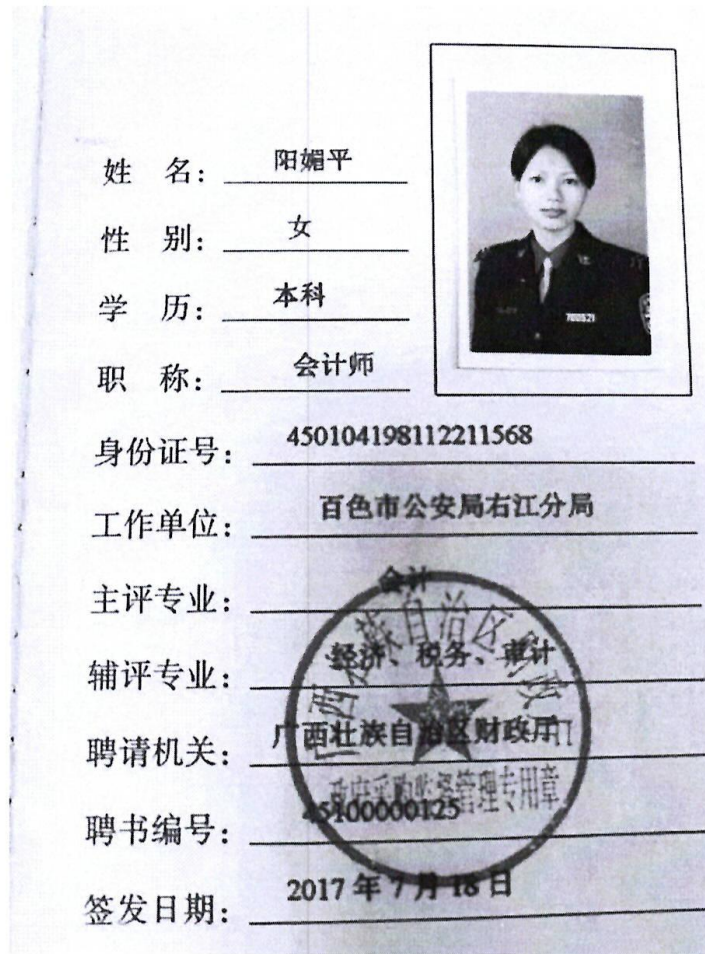 姓 名: 阳媚平
性 别: 女
学 历: 本科
职 称: 会计师
身份证号: 450104198112211568
工作单位: 百色市公安局右江分局
主评专业: 会计
辅评专业: 经济、税务、审计
聘请机关: 广西壮族自治区财政厅
聘书编号: 45100000125
签发日期: 2017 年 7 月 18 日
广西壮族自治区财政厅
政府采购监督管理专用章